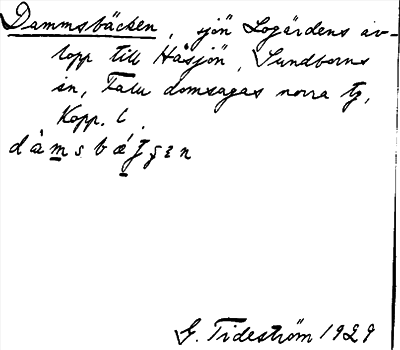 Dammsbäcken, sjön Logärdens av-
lopp till Håsjön, Sundborns
sn, Falu domsagas norra tg,
Kopp. l.
G. Tideström 1929